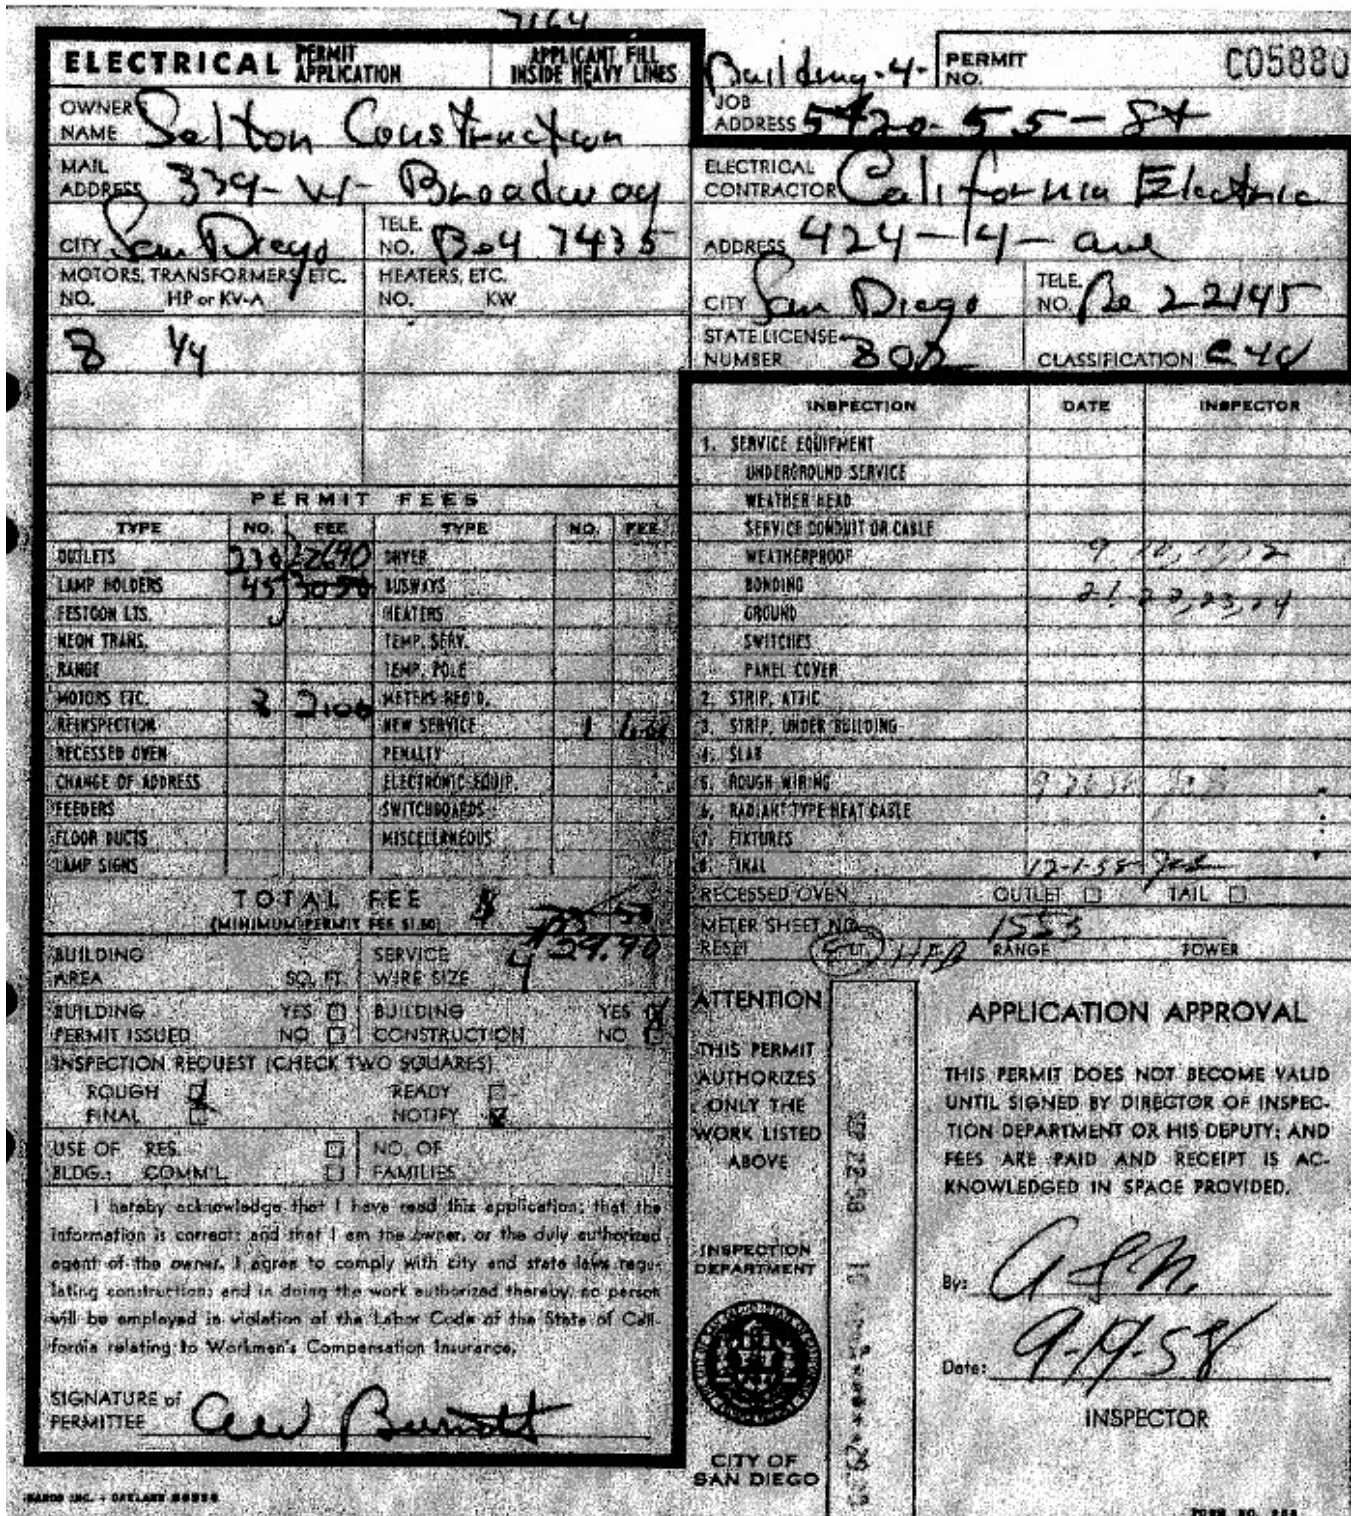 7164
ELECTRICAL PERMIT APPLICATION
APPLICANT FILL INSIDE HEAVY LINES
Building-4-
PERMIT NO. C05880
JOB ADDRESS 5420-55-St
OWNER NAME Selton Construction
MAIL ADDRESS 339-W-Broadway
CITY San Diego TELE. NO. Be4 7435
MOTORS, TRANSFORMERS, ETC. HEATERS, ETC.
NO. HP or KV-A NO. KW
8 1/4
ELECTRICAL CONTRACTOR California Electric
ADDRESS 424-14-ave
CITY San Diego TELE. NO. Be 22145
STATE LICENSE NUMBER CLASSIFICATION
PERMIT FEES
TYPE NO. FEE TYPE NO. FEE
OUTLETS DRYER
LAMP HOLDERS 45 BUSWAYS
FESTOON LTS. HEATERS
NEON TRANS. TEMP. SERV.
RANGE TEMP. POLE
MOTORS ETC. METERS REQ'D.
REINSPECTION NEW SERVICE 1
RECESSED OVEN PENALTY
CHANGE OF ADDRESS ELECTRONIC EQUIP.
FEEDERS SWITCHBOARDS
FLOOR DUCTS MISCELLANEOUS
LAMP SIGNS
TOTAL FEE $
(MINIMUM PERMIT FEE $1.50)
29.90
BUILDING AREA SQ. FT. SERVICE WIRE SIZE 4
BUILDING PERMIT ISSUED YES NO BUILDING CONSTRUCTION YES NO
INSPECTION REQUEST (CHECK TWO SQUARES)
ROUGH READY
FINAL NOTIFY
USE OF BLDG.: RES. COMM'L. NO. OF FAMILIES
I hereby acknowledge that I have read this application; that the
information is correct; and that I am the owner, or the duly authorized
agent of the owner. I agree to comply with city and state laws regu-
lating construction; and in doing the work authorized thereby, no person
will be employed in violation of the Labor Code of the State of Cali-
fornia relating to Workmen's Compensation Insurance.
SIGNATURE of PERMITTEE
INSPECTION DATE INSPECTOR
1. SERVICE EQUIPMENT
UNDERGROUND SERVICE
WEATHER HEAD
SERVICE CONDUIT OR CABLE
WEATHERPROOF
BONDING
GROUND
SWITCHES
PANEL COVER
2. STRIP, ATTIC
3. STRIP, UNDER BUILDING
4. SLAB
5. ROUGH WIRING
6. RADIANT TYPE HEAT CABLE
7. FIXTURES
8. FINAL 12-1-58
RECESSED OVEN OUTLET TAIL
METER SHEET NO. 1553
RESET RANGE POWER
ATTENTION
THIS PERMIT
AUTHORIZES
ONLY THE
WORK LISTED
ABOVE
INSPECTION
DEPARTMENT
CITY OF
SAN DIEGO
APPLICATION APPROVAL
THIS PERMIT DOES NOT BECOME VALID
UNTIL SIGNED BY DIRECTOR OF INSPEC-
TION DEPARTMENT OR HIS DEPUTY; AND
FEES ARE PAID AND RECEIPT IS AC-
KNOWLEDGED IN SPACE PROVIDED.
By:
Date: 9-19-58
INSPECTOR